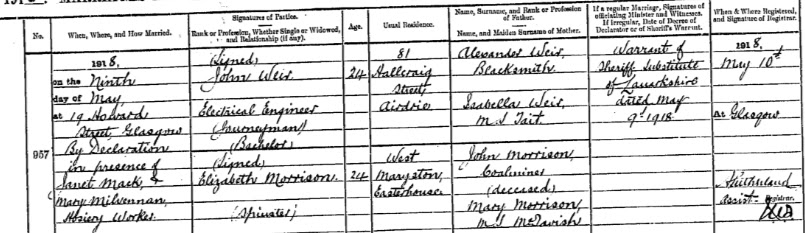 No.
When, Where, and How Married.
Signatures of Parties.
Rank or Profession, Whether Single or Widowed, and Relationship (if any).
Age.
Usual Residence.
Name, Surname, and Rank or Profession of Father.
Name, and Maiden Surname of Mother.
If a regular Marriage, Signatures of officiating Minister and Witnesses.
If Irregular, Date of Decree of Declarator or of Sheriff's Warrant.
When & Where Registered, and Signature of Registrar.
957
1918,
on the Ninth
day of May
at 19 Howard
Street Glasgow
By Declaration
in presence of
Janet Mack, &
Mary Milvennan,
Hosiery Worker
(Signed)
John Weir
Electrical Engineer
(Journeyman)
(Bachelor)
(Signed)
Elizabeth Morrison.
(Spinster)
24
24
81
Hallcraig
Street,
Airdrie
West
Maryston,
Easterhouse
Alexander Weir,
Blacksmith.
Isabella Weir,
M.S. Tait.
John Morrison,
Coalminer
(deceased)
Mary Morrison,
M.S. McTavish
Warrant of
Sheriff Substitute
of Lanarkshire
dated May
9th 1918
1918,
May 10th
At Glasgow
Assist. Registrar.